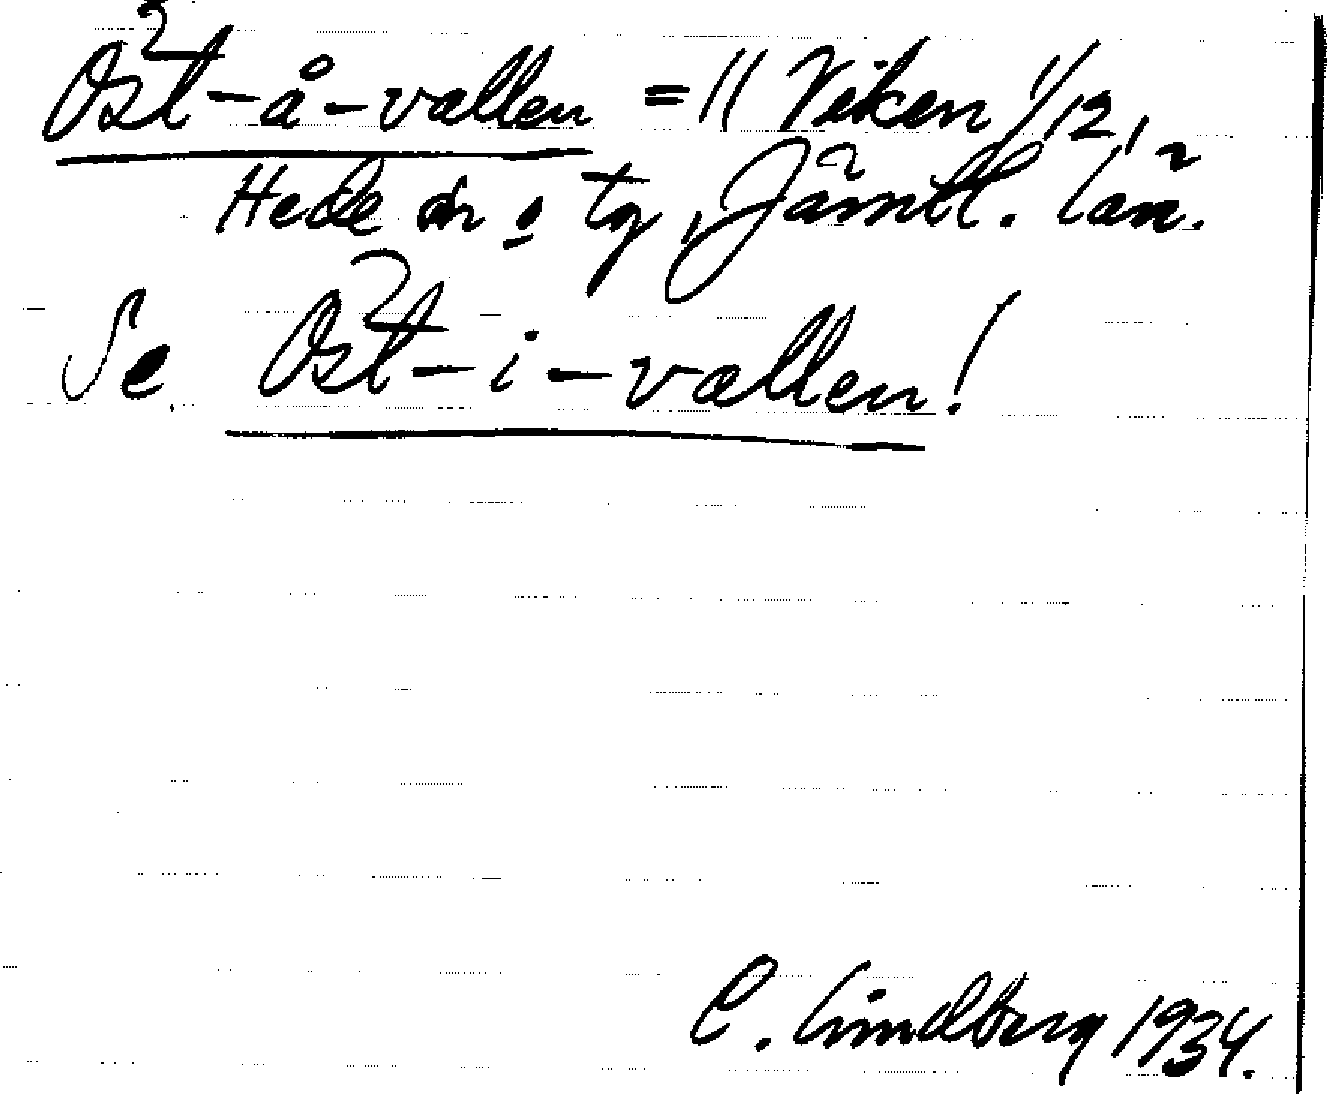 Öst-å-vallen = || Viken 1/12,
Hede sn o tg, Jämtl. län.
Se Öst-i-vallen!
C. Lindberg 1934.